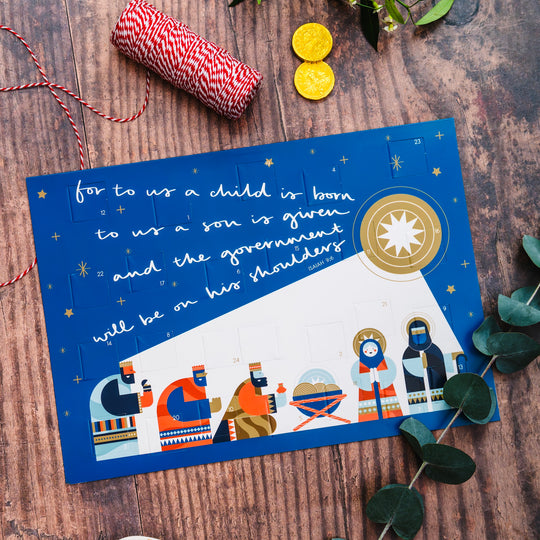 for to us a child is born
to us a son is given
and the government
will be on his shoulders
ISAIAH 9:6
23
12
1
22
17
6
15
8
24
2
20
9